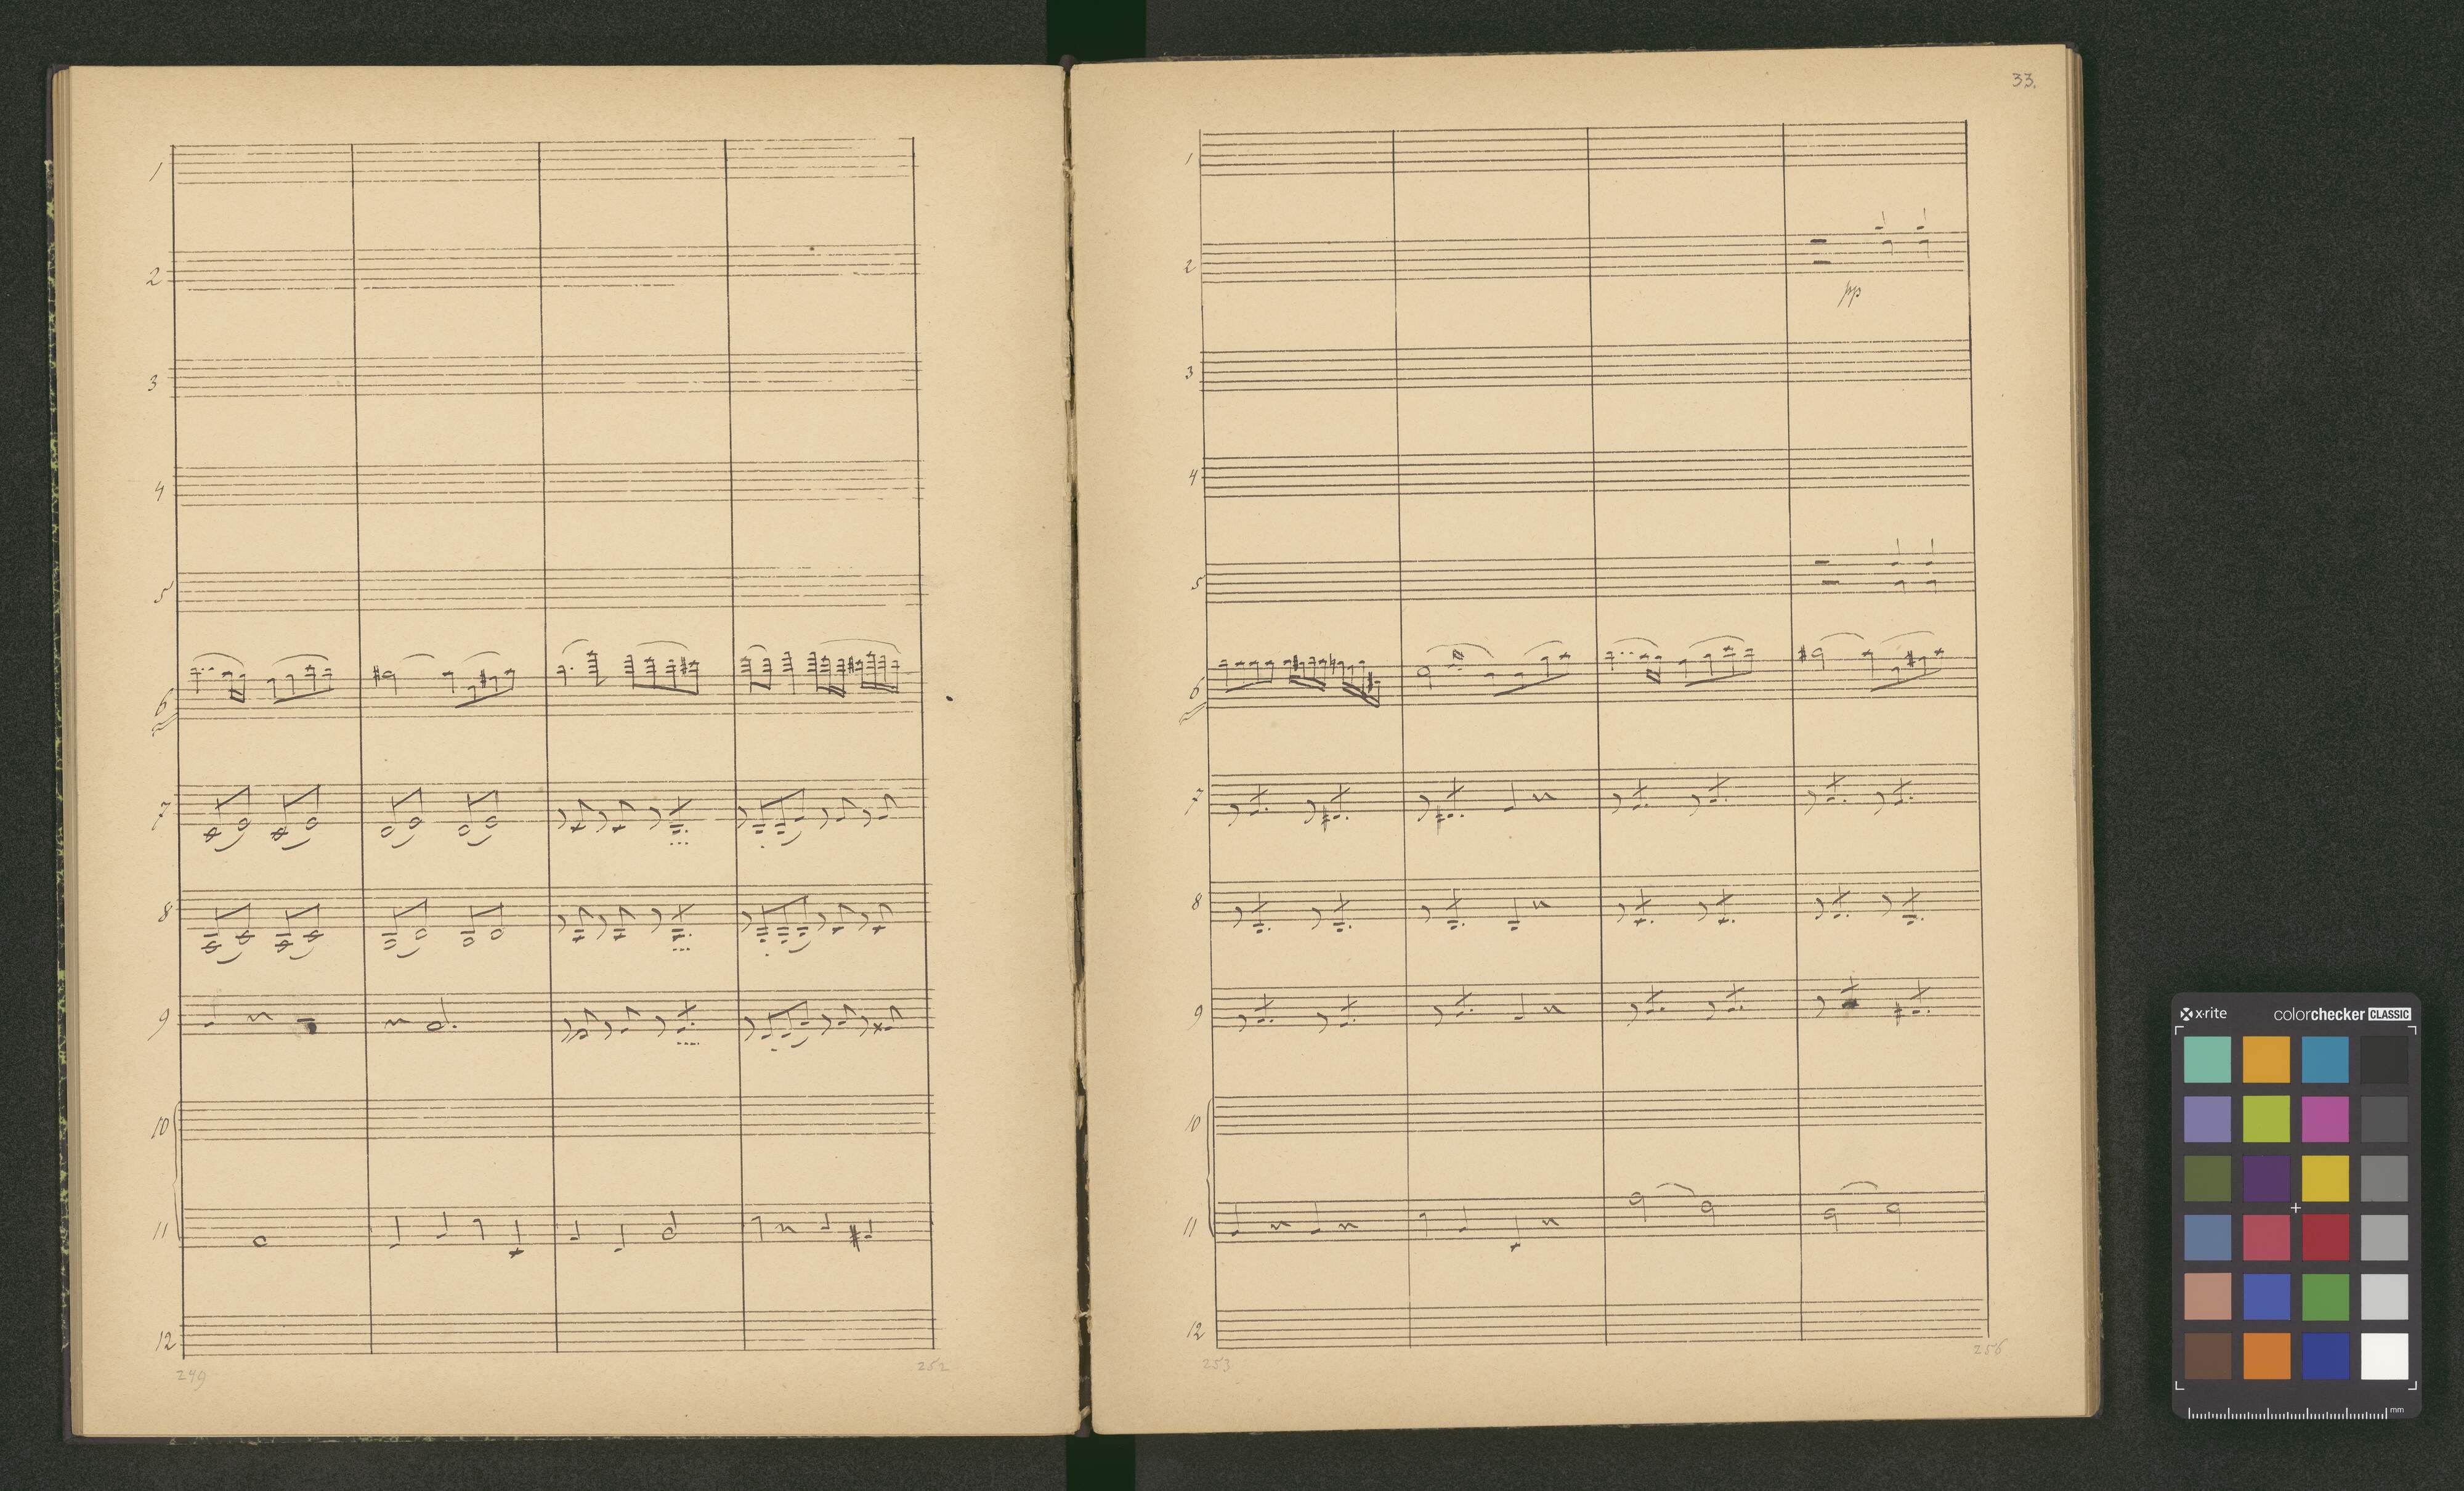 1
2
3
4
5
6
7
8
9
10
11
12
249
252
33.
1
2
pp
3
4
5
6
7
8
9
10
11
12
253
256
x·rite colorchecker CLASSIC
mm